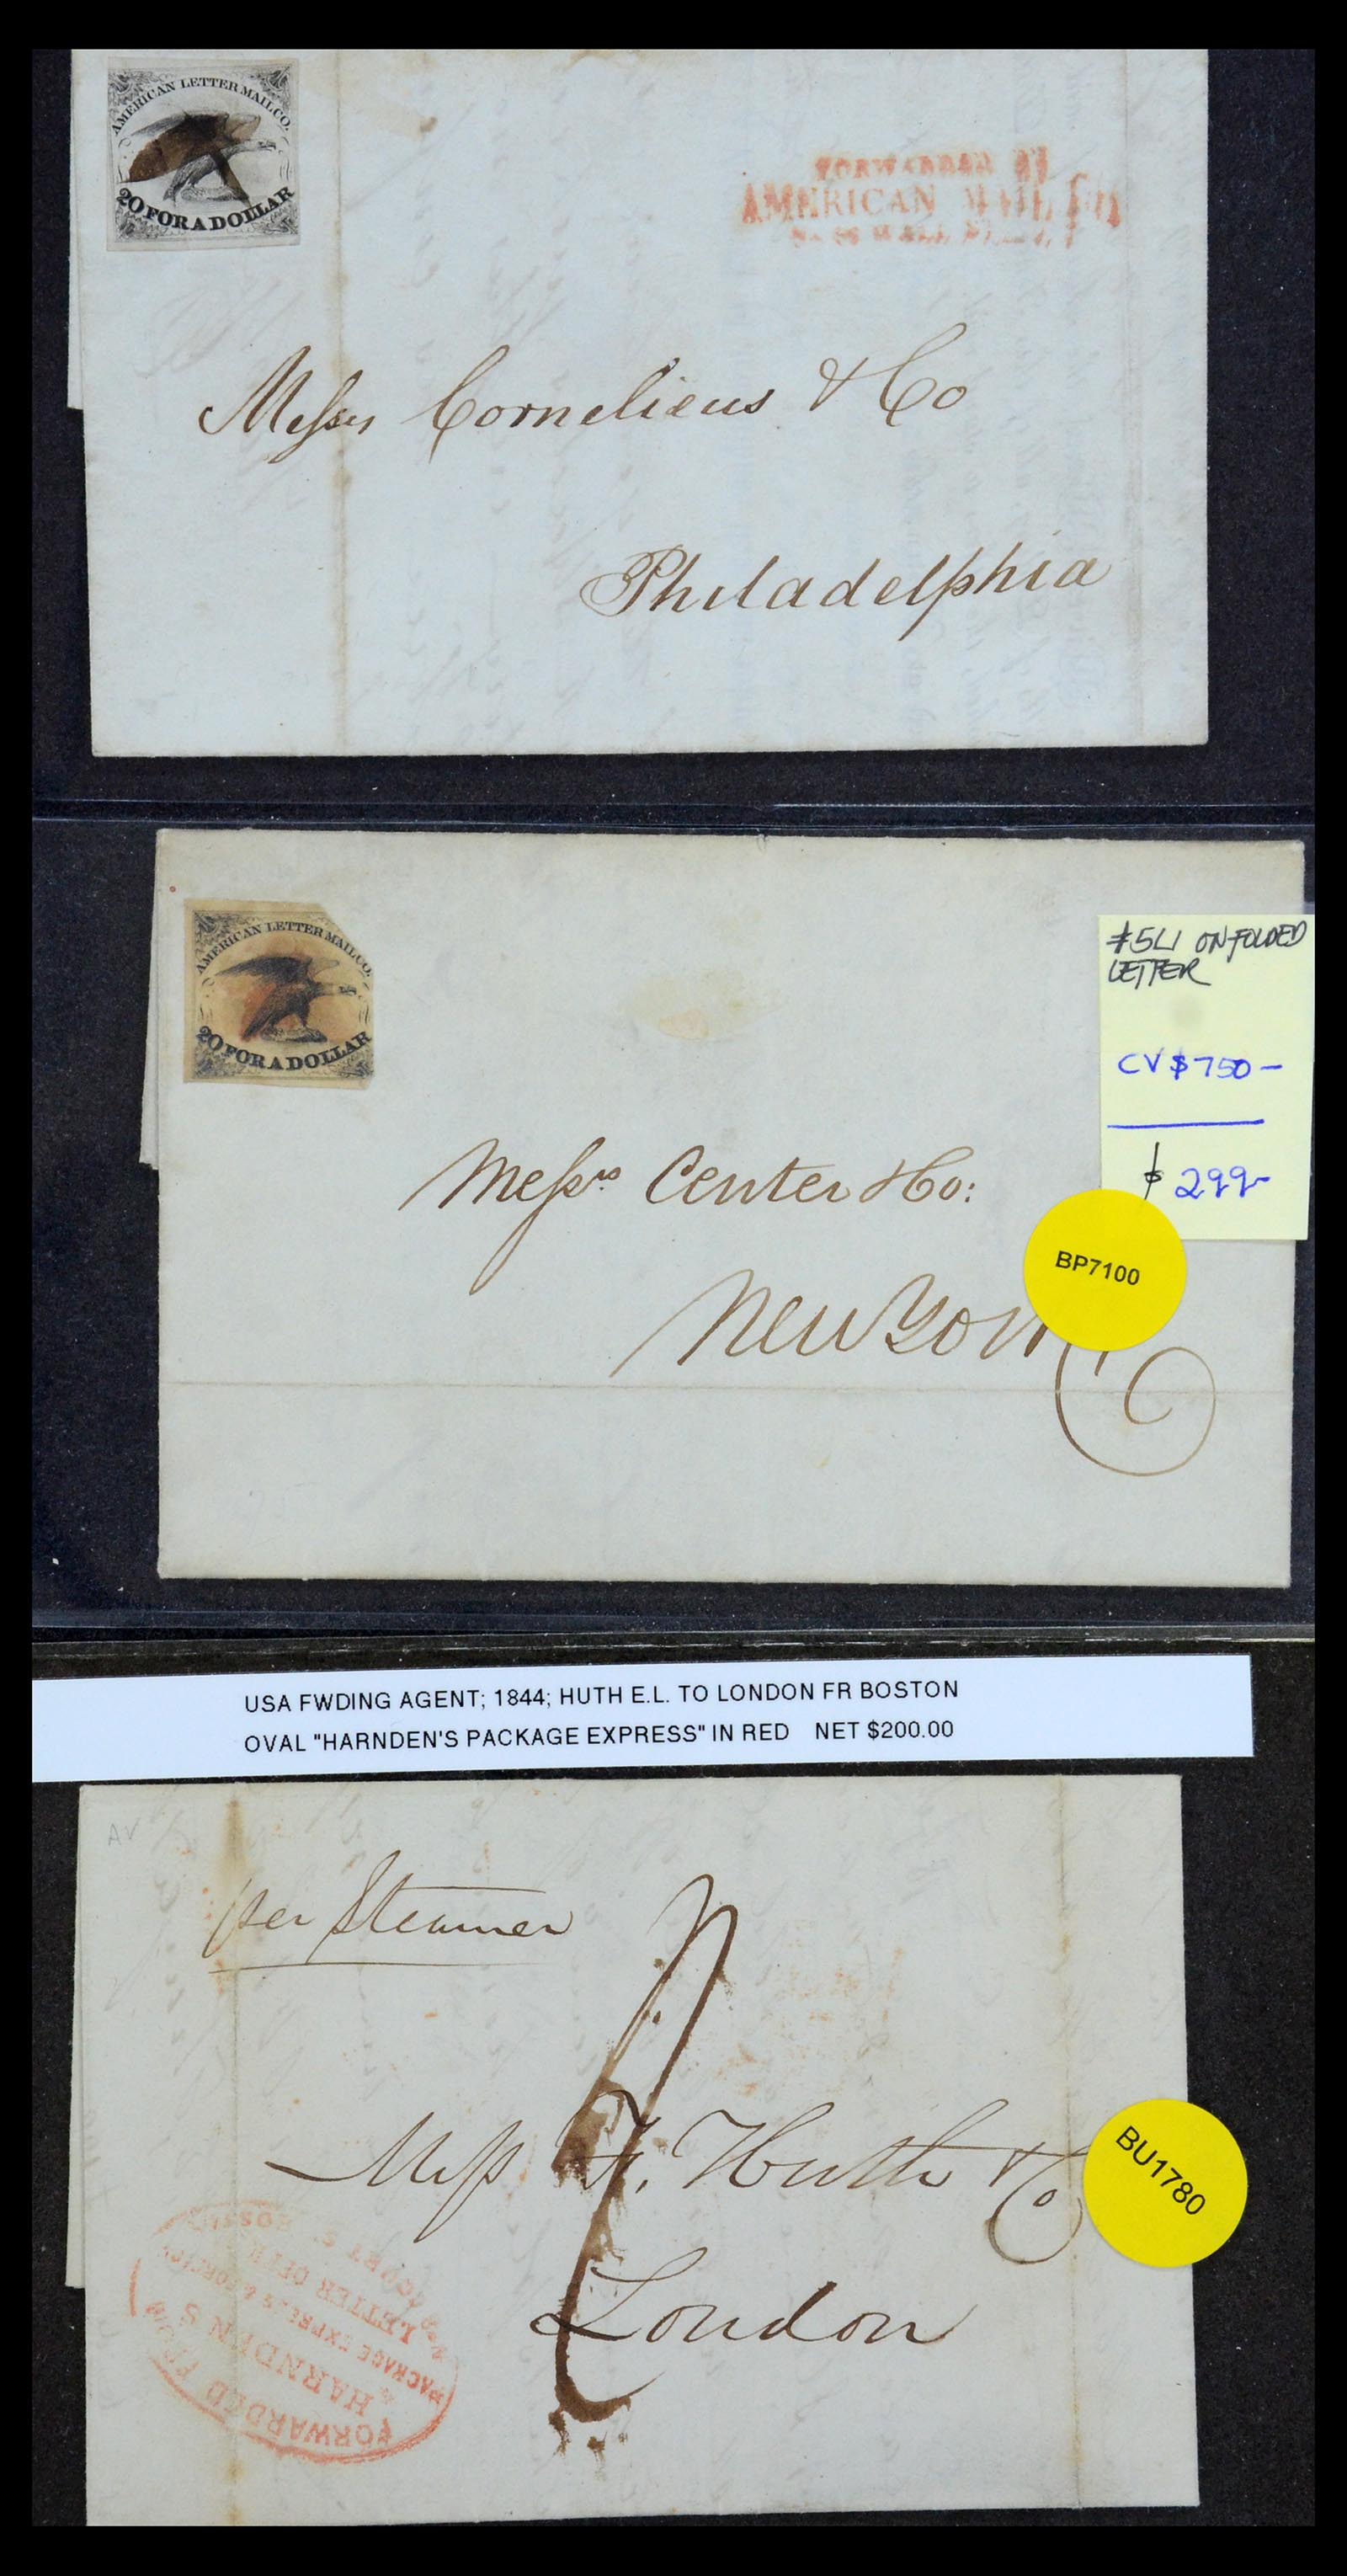 AMERICAN LETTER MAIL CO.
20 FOR A DOLLAR
FORWARDED BY
AMERICAN MAIL Co
WALL
Messrs Cornelieus & Co
Philadelphia
AMERICAN LETTER MAIL CO.
20 FOR A DOLLAR
#5L1 ON FOLDED
LETTER
CV $750-
$ 299-
Messrs Center & Co:
New York
BP7100
USA FWDING AGENT; 1844; HUTH E.L. TO LONDON FR BOSTON
OVAL "HARNDEN'S PACKAGE EXPRESS" IN RED NET $200.00
AV
per Steamer
Mess F. Huth & Co
London
BU1780
FORWARDED FROM
HARNDEN'S
PACKAGE EXPRESS & FOREIGN
LETTER OFFICE
COURT St BOSTON